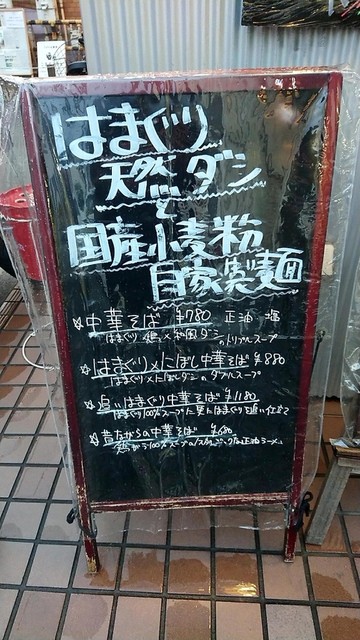 はまぐり
天然ダシ
と
国産小麦粉
自家製麺
☆中華そば ¥780 正油・塩
はまぐり×鶏×和風ダシ
のトリプルスープ
☆はまぐり×にぼし中華そば ¥880
はまぐり×にぼしダシのダブルスープ
☆追いはまぐり中華そば ¥1180
はまぐり100%スープに更にはまぐりを追い仕立て
☆昔ながらの中華そば ¥680
鶏がら100%
正油ラーメン